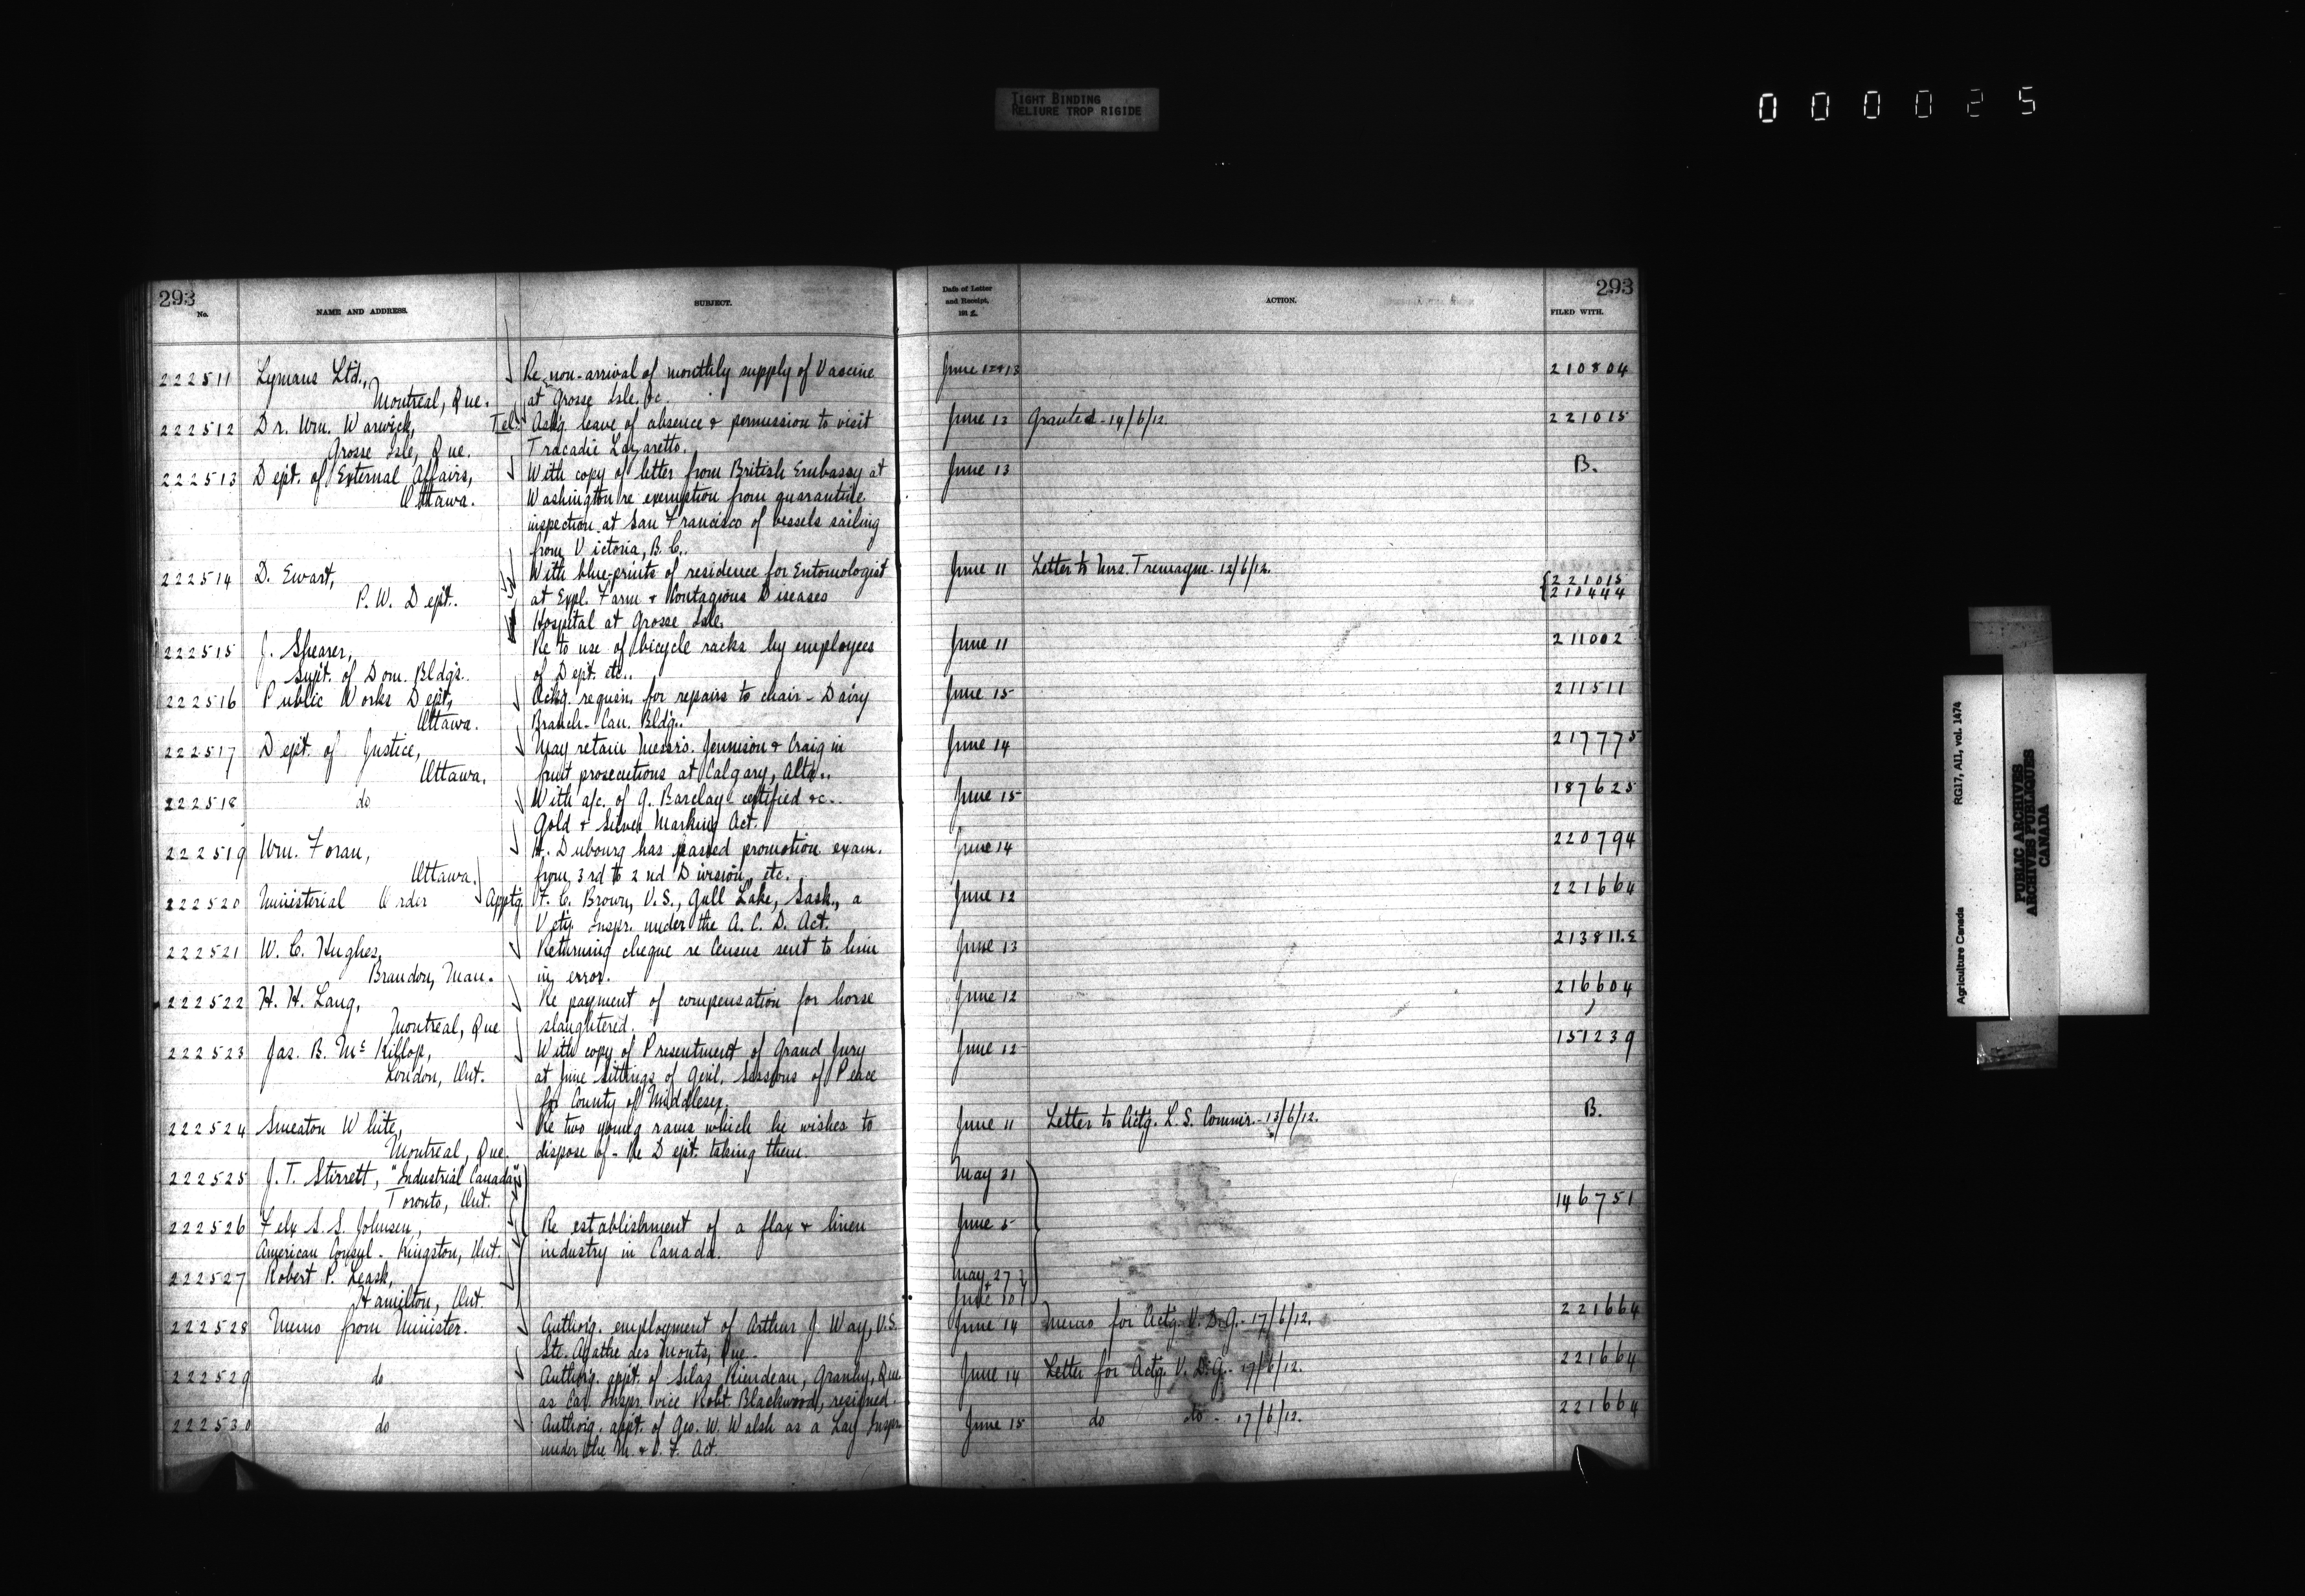 TIGHT BINDING
RELIURE TROP RIGIDE
000025
293
No.
NAME AND ADDRESS.
SUBJECT.
Date of Letter
and Receipt,
191 2.
ACTION.
293
FILED WITH.
222511 Lymans Ltd., Re non-arrival of monthly supply of Vaccine June 12+13 210804
Montreal, Que. at Grosse Isle. &c.
222512 Dr. Wm. Warwick, Tel. Askg. leave of absence & permission to visit June 13 Granted - 14/6/12. 221015
Grosse Isle, Que. Tracadie Lazaretto.
222513 Dept. of External Affairs, With copy of letter from British Embassy at June 13 B.
Ottawa. Washington re exemption from quarantine
inspection at San Francisco of vessels sailing
from Victoria, B.C..
222514 D. Ewart, With blue-prints of residence for Entomologist June 11 Letter to Mrs. Tremayne - 12/6/12. 221015
P. W. Dept.. at Expl. Farm & Contagious Diseases 210444
Hospital at Grosse Isle.
222515 J. Shearer, Re to use of bicycle racks by employees June 11 211002
Supt. of Dom. Bldgs.. of Dept. etc..
222516 Public Works Dept., Ackg. requsn. for repairs to chair - Dairy June 15 211511
Ottawa. Branch - Can. Bldg..
222517 Dept. of Justice, May retain Messrs. Jennison & Craig in June 14 217775
Ottawa. fruit prosecutions at Calgary, Alta..
222518 do With a/c. of G. Barclay certified &c.. June 15 187625
Gold & Silver Marking Act.
222519 Wm. Foran, H. Dubourg has passed promotion exam. June 14 220794
Ottawa. from 3rd to 2nd Division, etc.
222520 Ministerial Order Apptg. F. C. Brown, V.S., Gull Lake, Sask., a June 12 221664
Vety. Inspr. under the A. C. D. Act.
222521 W. C. Hughes, Returning cheque re Census sent to him June 13 213811.E
Brandon, Man. in error.
222522 H. H. Lang, Re payment of compensation for horse June 12 216604
Montreal, Que slaughtered.
222523 Jas. B. McKillop, With copy of Presentment of Grand Jury June 12 151239
London, Ont. at June Sittings of Genl. Sessions of Peace
for County of Middlesex.
222524 Smeaton White, Re two young rams which he wishes to June 11 Letter to Actg. L. S. Commr. - 13/6/12. B.
Montreal, Que. dispose of - Re Dept. taking them.
222525 J. T. Stirrett, "Industrial Canada" May 31
Toronto, Ont. 146751
222526 Felix S. S. Johnson, Re establishment of a flax & linen June 5
American Consul - Kingston, Ont. industry in Canada.
222527 Robert P. Leask, May 27
Hamilton, Ont. June 10
222528 Memo from Minister. Authorg. employment of Arthur J. Way, V.S. June 14 Memo for Actg. V. D. G. - 17/6/12. 221664
Ste. Agathe des Monts, Que..
222529 do Authorg. appt. of Silas Riendeau, Granby, Que. June 14 Letter for Actg. V. D. G. - 17/6/12. 221664
as Car. Inspr. vice Robt. Blackwood, resigned.
222530 do Authorg. appt. of Geo. W. Walsh as a Lay Inspr. June 15 do do - 17/6/12. 221664
under the M. & C. F. Act.
Agriculture Canada
RG17, AII, vol. 1474
PUBLIC ARCHIVES
ARCHIVES PUBLIQUES
CANADA